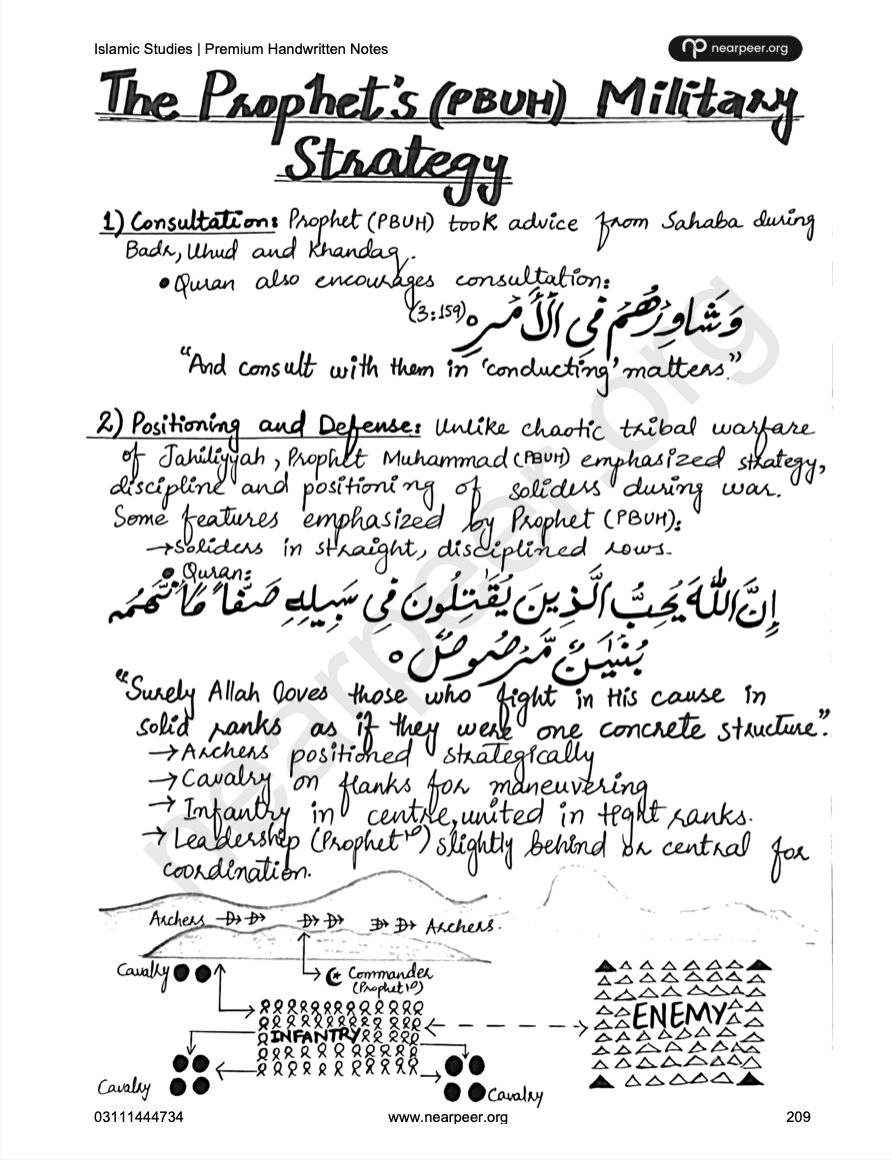 Islamic Studies | Premium Handwritten Notes
nearpeer.org
The Prophet's (PBUH) Military
Strategy
1) Consultation: Prophet (PBUH) took advice from Sahaba during
Badr, Uhud and Khandaq.
• Quran also encourages consultation:
وَشَاوِرْهُمْ فِي الْأَمْرِ (3:159)
"And consult with them in 'conducting' matters."
2) Positioning and Defense: Unlike chaotic tribal warfare
of Jahiliyyah, Prophet Muhammad (PBUH) emphasized strategy,
discipline and positioning of soliders during war.
Some features emphasized by Prophet (PBUH):
→ Soliders in straight, disciplined rows.
• Quran:
إِنَّ اللّٰهَ يُحِبُّ الَّذِينَ يُقَٰتِلُونَ فِي سَبِيلِهِ صَفًّا كَأَنَّهُم
بُنْيَٰنٌ مَّرْصُوصٌ
"Surely Allah loves those who fight in His cause in
solid ranks as if they were one concrete structure".
→ Archers positioned strategically
→ Cavalry on flanks for maneuvering
→ Infantry in centre, united in tight ranks.
→ Leadership (Prophet) slightly behind or central for
coordination.
Archers
Archers.
Cavalry
Commander
(Prophet)
INFANTRY
ENEMY
Cavalry
Cavalry
nearpeer.org
03111444734 www.nearpeer.org 209